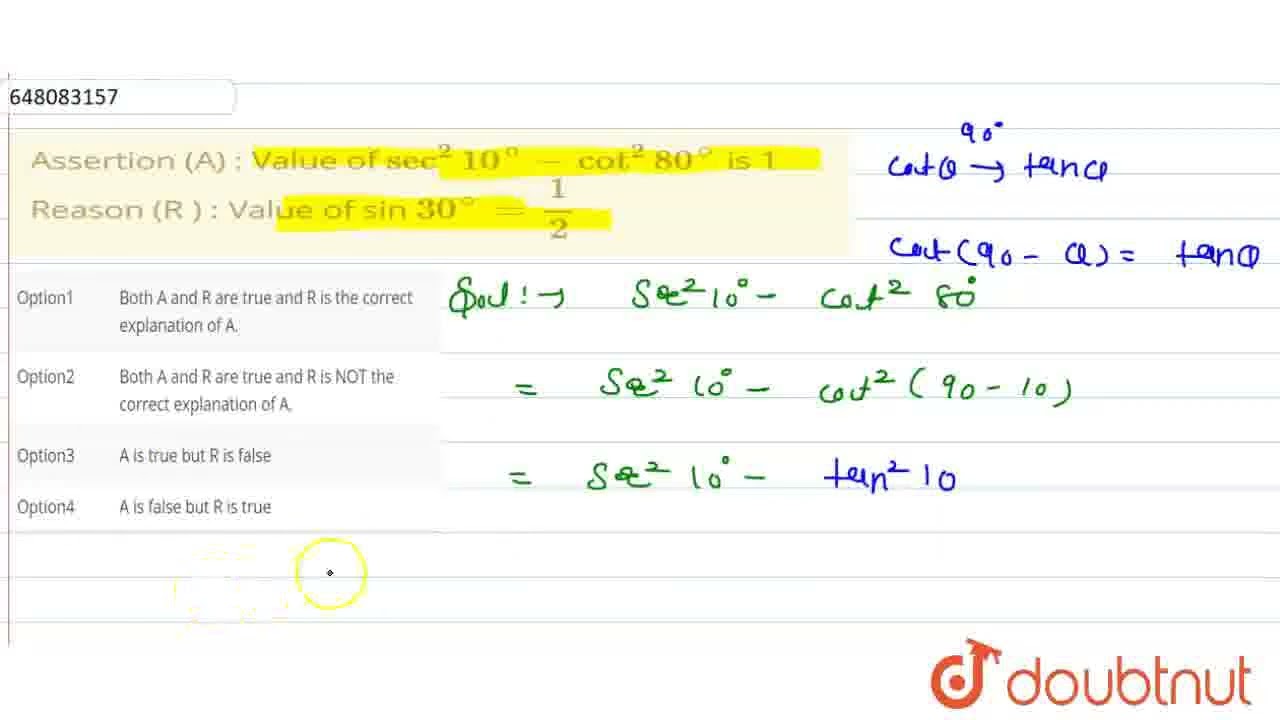 648083157
Assertion (A) : Value of sec² 10° − cot² 80° is 1
Reason (R ) : Value of sin 30° = 1/2
90°
cotθ → tanθ
cot(90 - θ) = tanθ
Option1 Both A and R are true and R is the correct
explanation of A.
Option2 Both A and R are true and R is NOT the
correct explanation of A.
Option3 A is true but R is false
Option4 A is false but R is true
Sol! → Sec² 10° - cot² 80°
= Sec² 10° - cot² (90 - 10)
= Sec² 10° - tan² 10
doubtnut